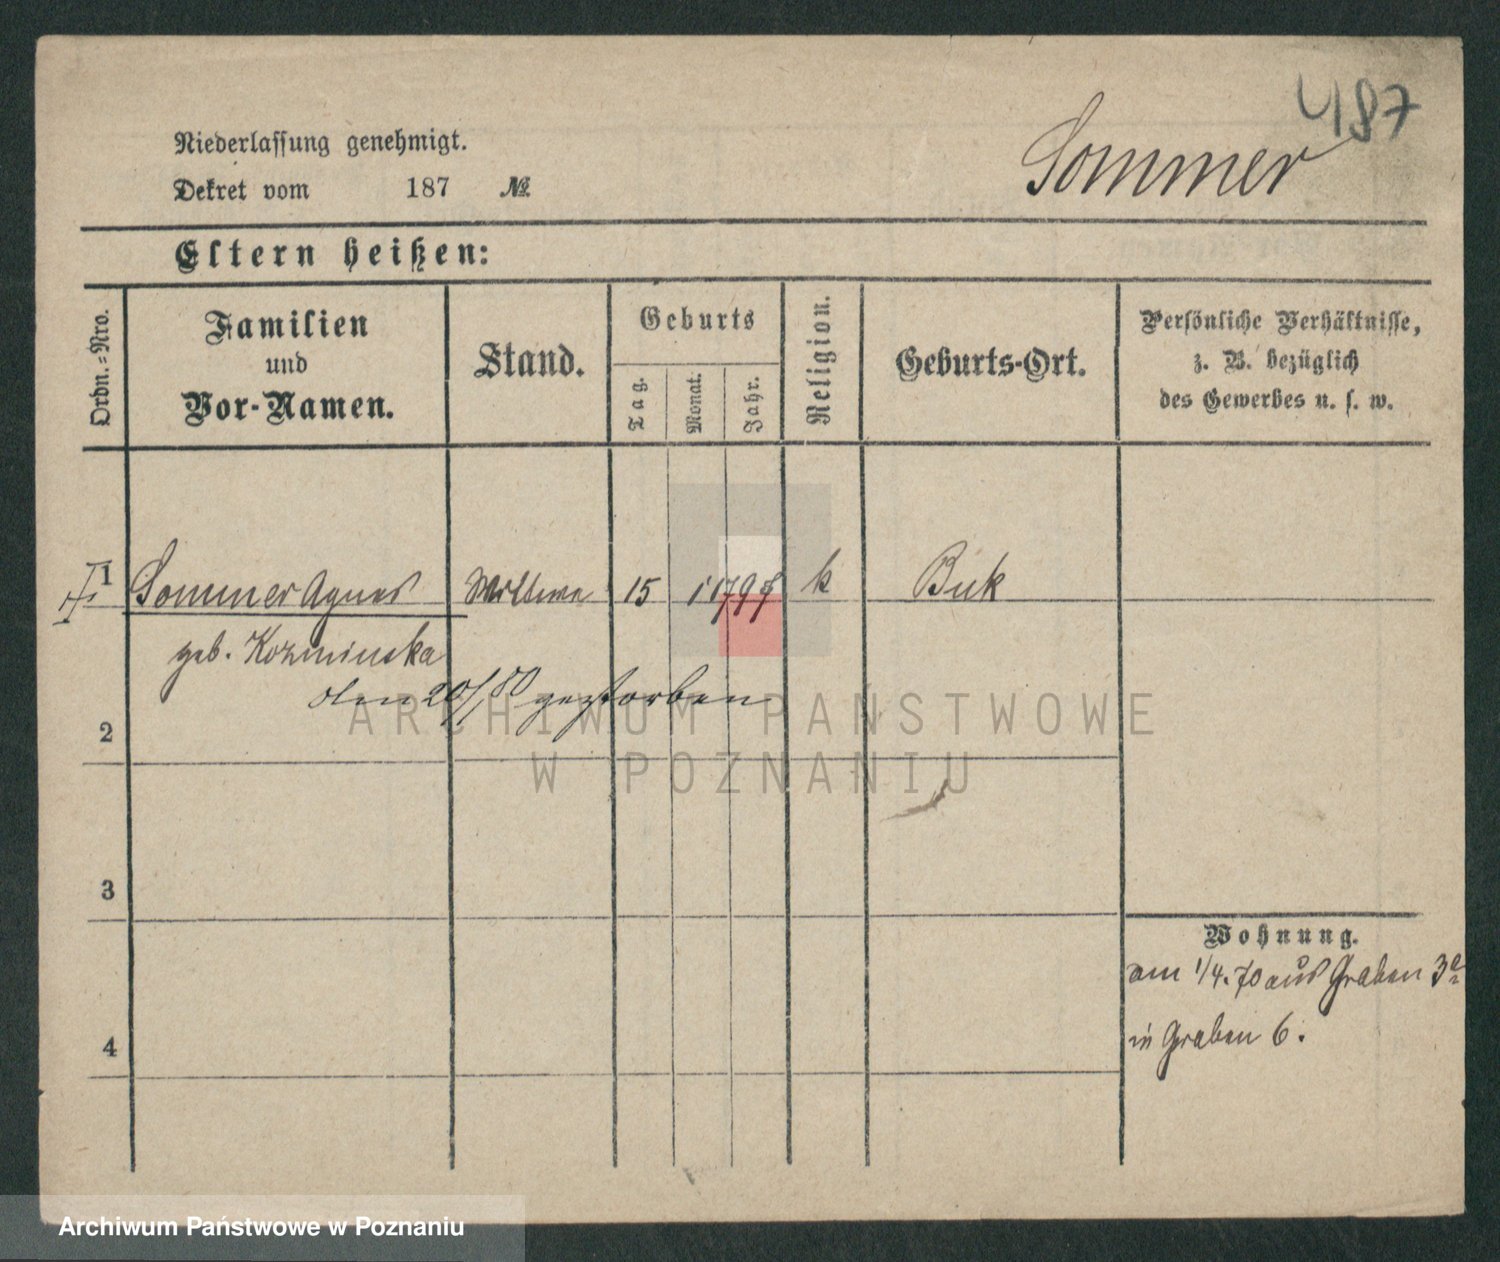 487
Sommer
Niederlassung genehmigt.
Dekret vom 187 №
Eltern heißen:
Ordn.-Nro.
Familien
und
Vor-Namen.
Stand.
Geburts
Tag.
Monat.
Jahr.
Religion.
Geburts-Ort.
Persönliche Verhältnisse,
z. B. bezüglich
des Gewerbes u. s. w.
1 Sommer Agnes Wittwe 15 1 179 k Buk
geb. Kozminska
den 20/1 80 gestorben
2
3
4
Wohnung.
am 1/4. 70 aus Graben 3
in Graben 6.
ARCHIWUM PAŃSTWOWE
W POZNANIU
Archiwum Państwowe w Poznaniu